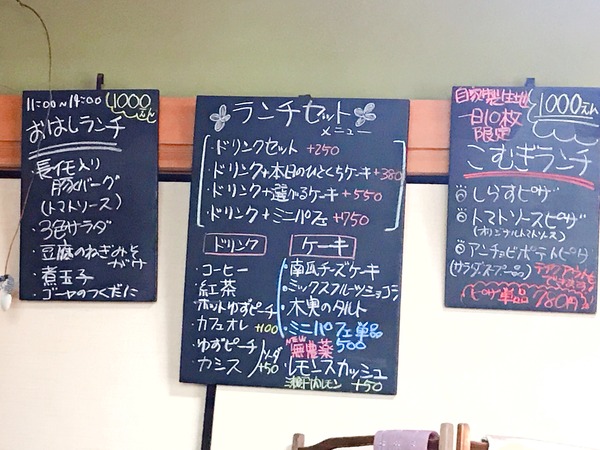 11:00~14:00 1000えん
おはしランチ
・長任入り
豚バーグ
(トマトソース)
・3色サラダ
・豆腐のねぎみそ
・煮玉子
・ゴーヤのつくだに
ランチセット
メニュー
・ドリンクセット +250
・ドリンク+本日のひとくちケーキ+380
・ドリンク+選べるケーキ+550
・ドリンク+ミニパフェ+750
ドリンク
・コーヒー
・紅茶
・ホットゆずピーチ
・カフェオレ +100
・ゆずピーチ
・カシス
ソーダ
+50
ケーキ
・南瓜チーズケーキ
・ミックスフルーツショコラ
・木実のタルト
・ミニパフェ単品
500
無農薬
・レモンスカッシュ
瀬戸内レモン +50
自家製生地
一日10枚
限定
1000えん
こむぎランチ
しらすピザ
トマトソースピザ
(オリジナルトマトソース)
アンチョビポテトピザ
(サラダ、スープ、一品)
テイクアウトも
できます
ピザ単品 780円